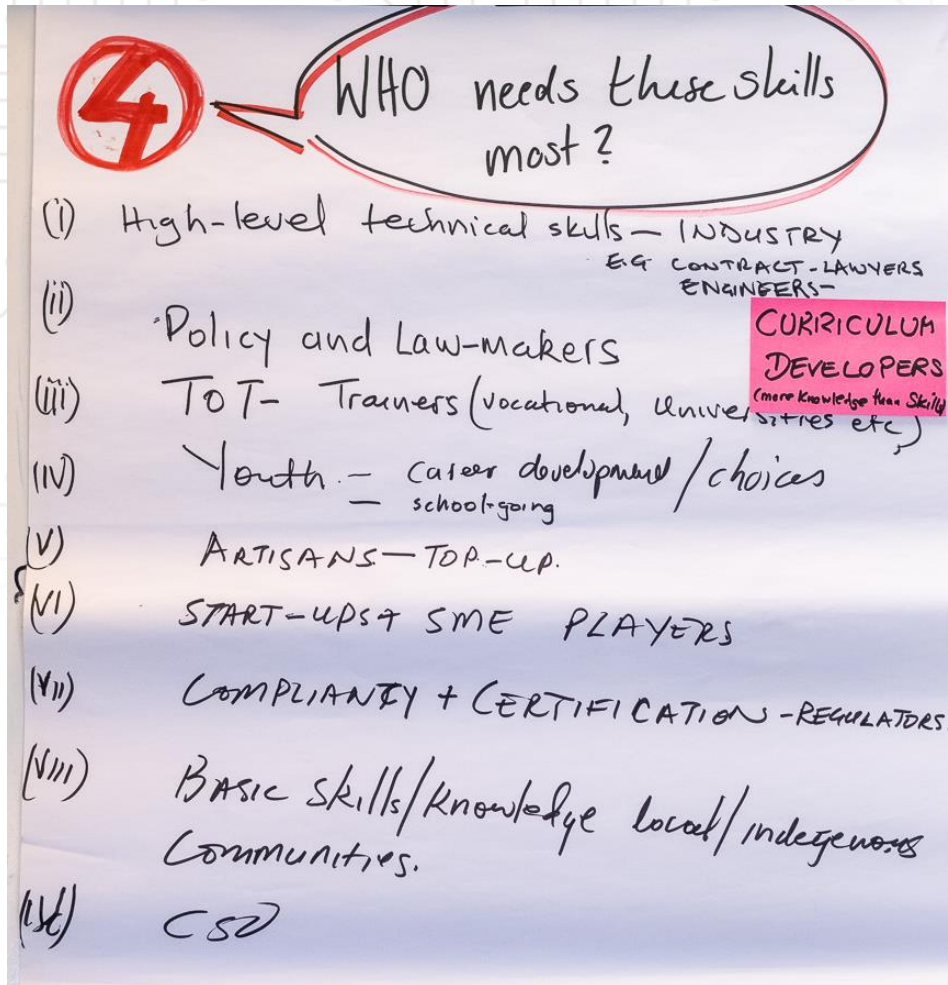 4
WHO needs these skills
most?
(i) High-level technical skills — INDUSTRY
E.G CONTRACT - LAWYERS
ENGINEERS -
(ii) Policy and Law-makers
CURRICULUM
DEVELOPERS
(more knowledge than Skill)
(iii) TOT- Trainers (vocational, Universities etc)
(IV) Youth - career development / choices
- school-going
(V) ARTISANS - TOP-UP.
(VI) START-UPS + SME PLAYERS
(VII) COMPLIANCY + CERTIFICATION - REGULATORS
(VIII) BASIC Skills/Knowledge local/indegenous
Communities.
(ix) CSO